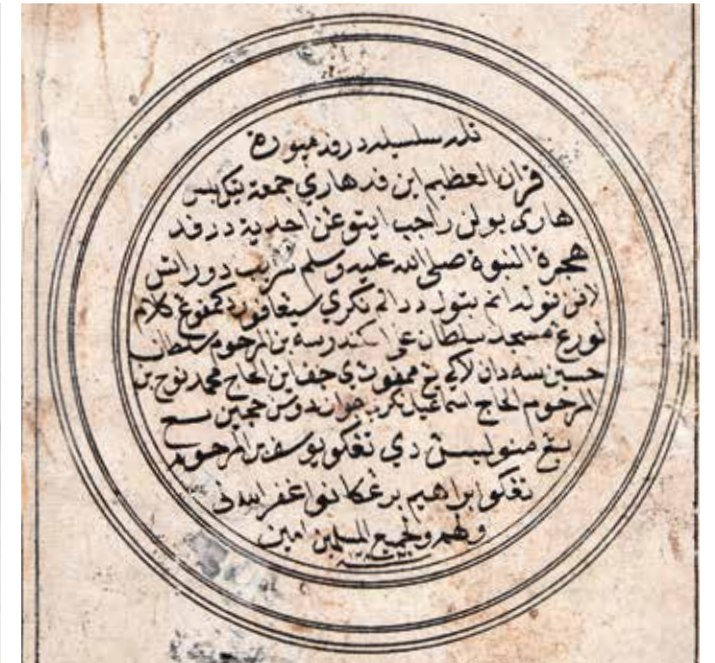 تله سلسيله درفد ميورة
قران العظيم اين فد هاري جمعة
هاري بولن راجب ايتوعن احدية درفد
هجرة النبوة صلى الله عليه وسلم سريب دوراتس
لافن فوله انم بتول ددالم نكري سيڠافورا كمفوڠ كلام
لورڠ مسجد سلطان علي اسكندر شه بن المرحوم سلطان
حسين شه دان لاكي يڠ ممفوڽأي جف اين الحاج محمد نوح بن
المرحوم الحاج اسماعيل نكري جوان دوسن
يڠ منوليسڽ دي تڠكو يوسف بن المرحوم
تڠكو ابراهيم ترڠكانو اغفر الله لي
ولهم ولجميع المسلمين امين